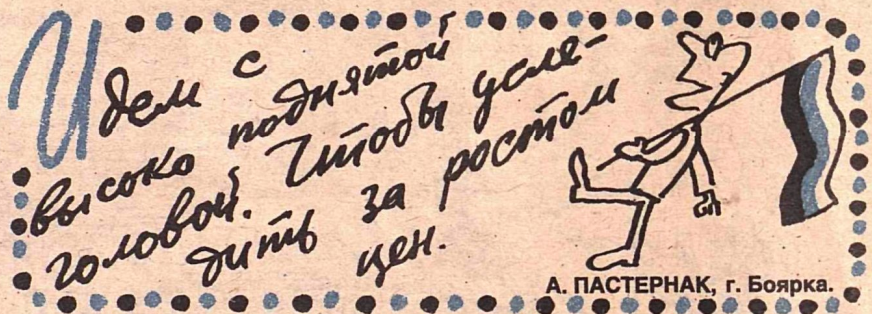 Идем с
высоко поднятой
головой. Чтобы усле-
дить за ростом
цен.
А. ПАСТЕРНАК, г. Боярка.